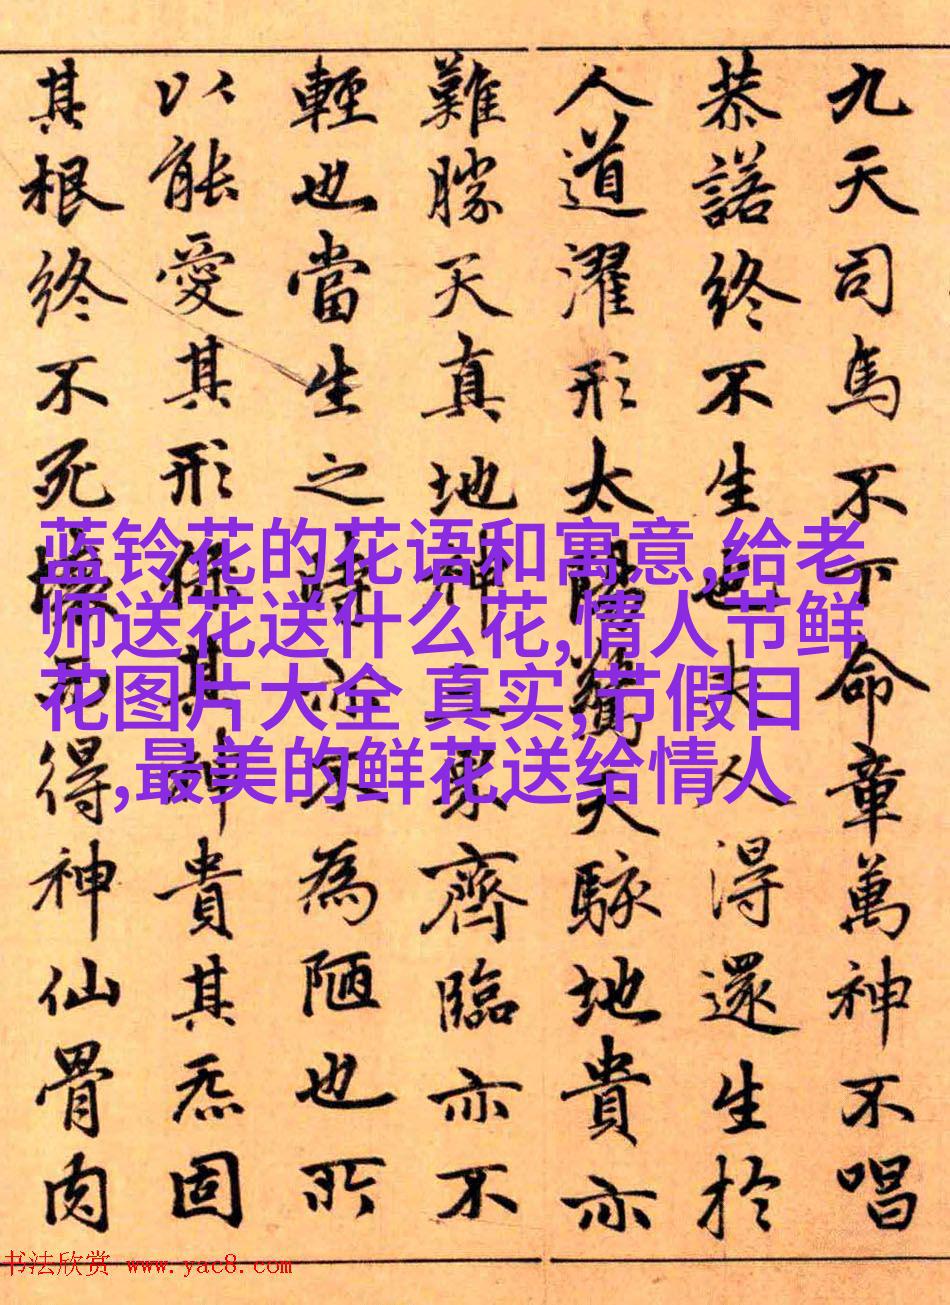 九天司馬不下命章萬神不唱
恭諾終不生也夫人得還生於
人道濯形太陽驚天駭地貴亦
難勝天真地神三界齊臨亦不
輕也當生之時亦不為陋也所
以能愛其形保其神貴其炁固
其根終不死壞而得神仙骨肉
蓝铃花的花语和寓意,给老
师送花送什么花,情人节鲜
花图片大全 真实,节假日
,最美的鲜花送给情人
书法欣赏 www.yac8.com